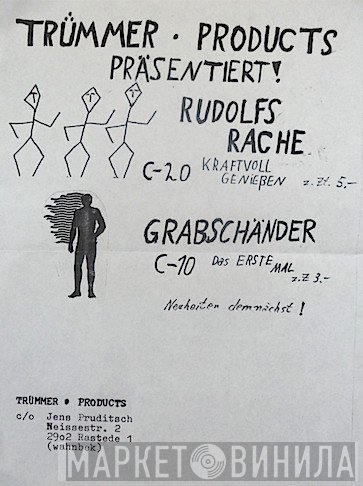 TRÜMMER · PRODUCTS
PRÄSENTIERT!
RUDOLFS
RACHE
C-20 KRAFTVOLL
GENIEẞEN z.Zt. 5,-
GRABSCHÄNDER
C-10 Das ERSTE
MAL
z.Z 3.-
Neuheiten demnächst!
TRÜMMER • PRODUCTS
c/o Jens Pruditsch
Neissestr. 2
2902 Rastede 1
(wahnbek)
МАРКЕТ ВИНИЛА